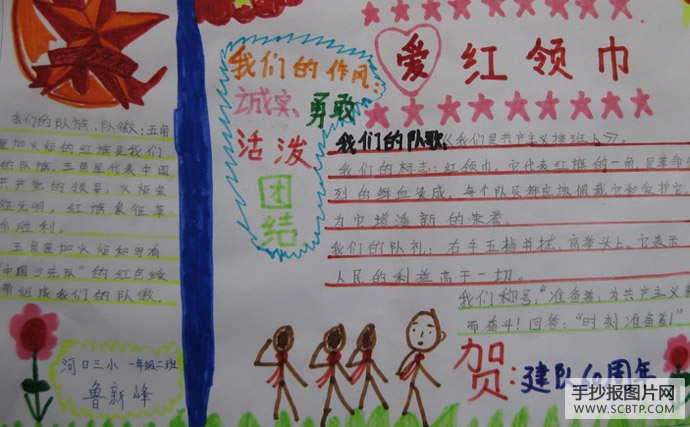 我们的队旗、队徽：五角
星加火炬的红旗是我们
的队旗。五角星代表中国
共产党的领导，火炬象
征光明，红旗象征革
命胜利。
五角星加火炬和写有
"中国少先队"的红色绶
带组成我们的队徽。
河口三小 一年级二班
鲁新峰
我们的作风：
诚实、勇敢
活泼
团
结
爱红领巾
我们的队歌《我们是共产主义接班人》。
我们的标志：红领巾。它代表红旗的一角，是革命先
烈的鲜血染成。每个队员都应该佩戴它和爱护它，
为它增添新的荣誉。
我们的队礼：右手五指并拢，高举头上。它表示
人民的利益高于一切。
我们呼号："准备着，为共产主义事
而奋斗！回答："时刻准备着！"
贺：建队60周年
手抄报图片网
WWW.SCBTP.COM